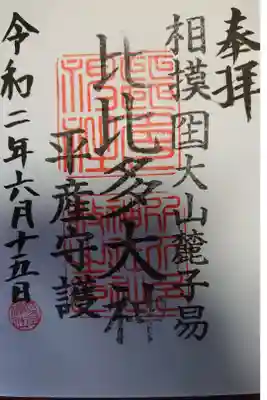 奉拝
相摸国大山麓子易
比比多大神
平産守護
令和二年六月十五日